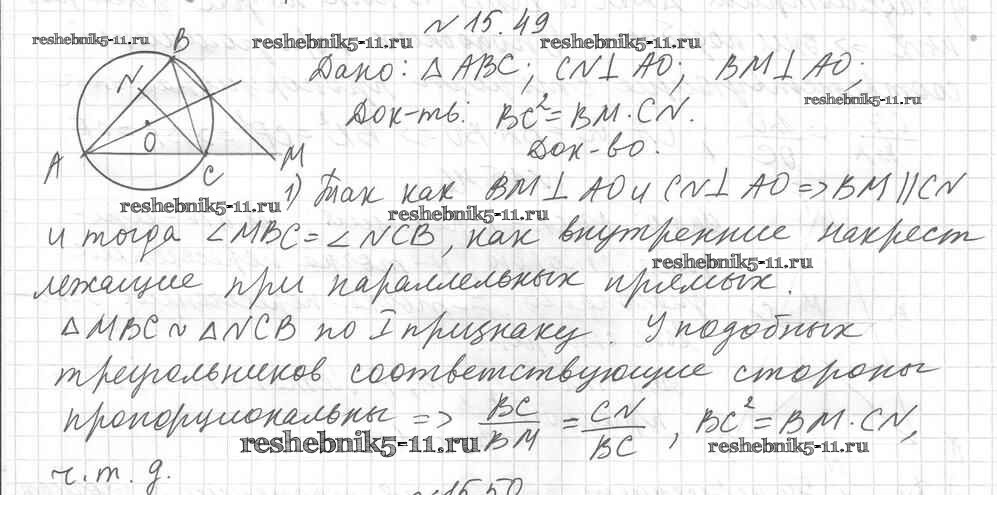 N 15.49
reshebnik5-11.ru reshebnik5-11.ru reshebnik5-11.ru
B
N
O
A
C
M
Дано: △ ABC; CN⊥ AO; BM⊥ AO;
reshebnik5-11.ru
Док-ть: BC² = BM · CN.
Док-во:
1) Так как BM⊥ AO и CN⊥ AO => BM || CN
reshebnik5-11.ru reshebnik5-11.ru
и тогда ∠MBC = ∠NCB, как внутренние накрест
reshebnik5-11.ru
лежащие при параллельных прямых.
△ MBC ~ △ NCB по I признаку. У подобных
треугольников соответствующие стороны
пропорциональны => BC/BM = CN/BC, BC² = BM · CN,
reshebnik5-11.ru reshebnik5-11.ru
ч.т.д.
N 15.50